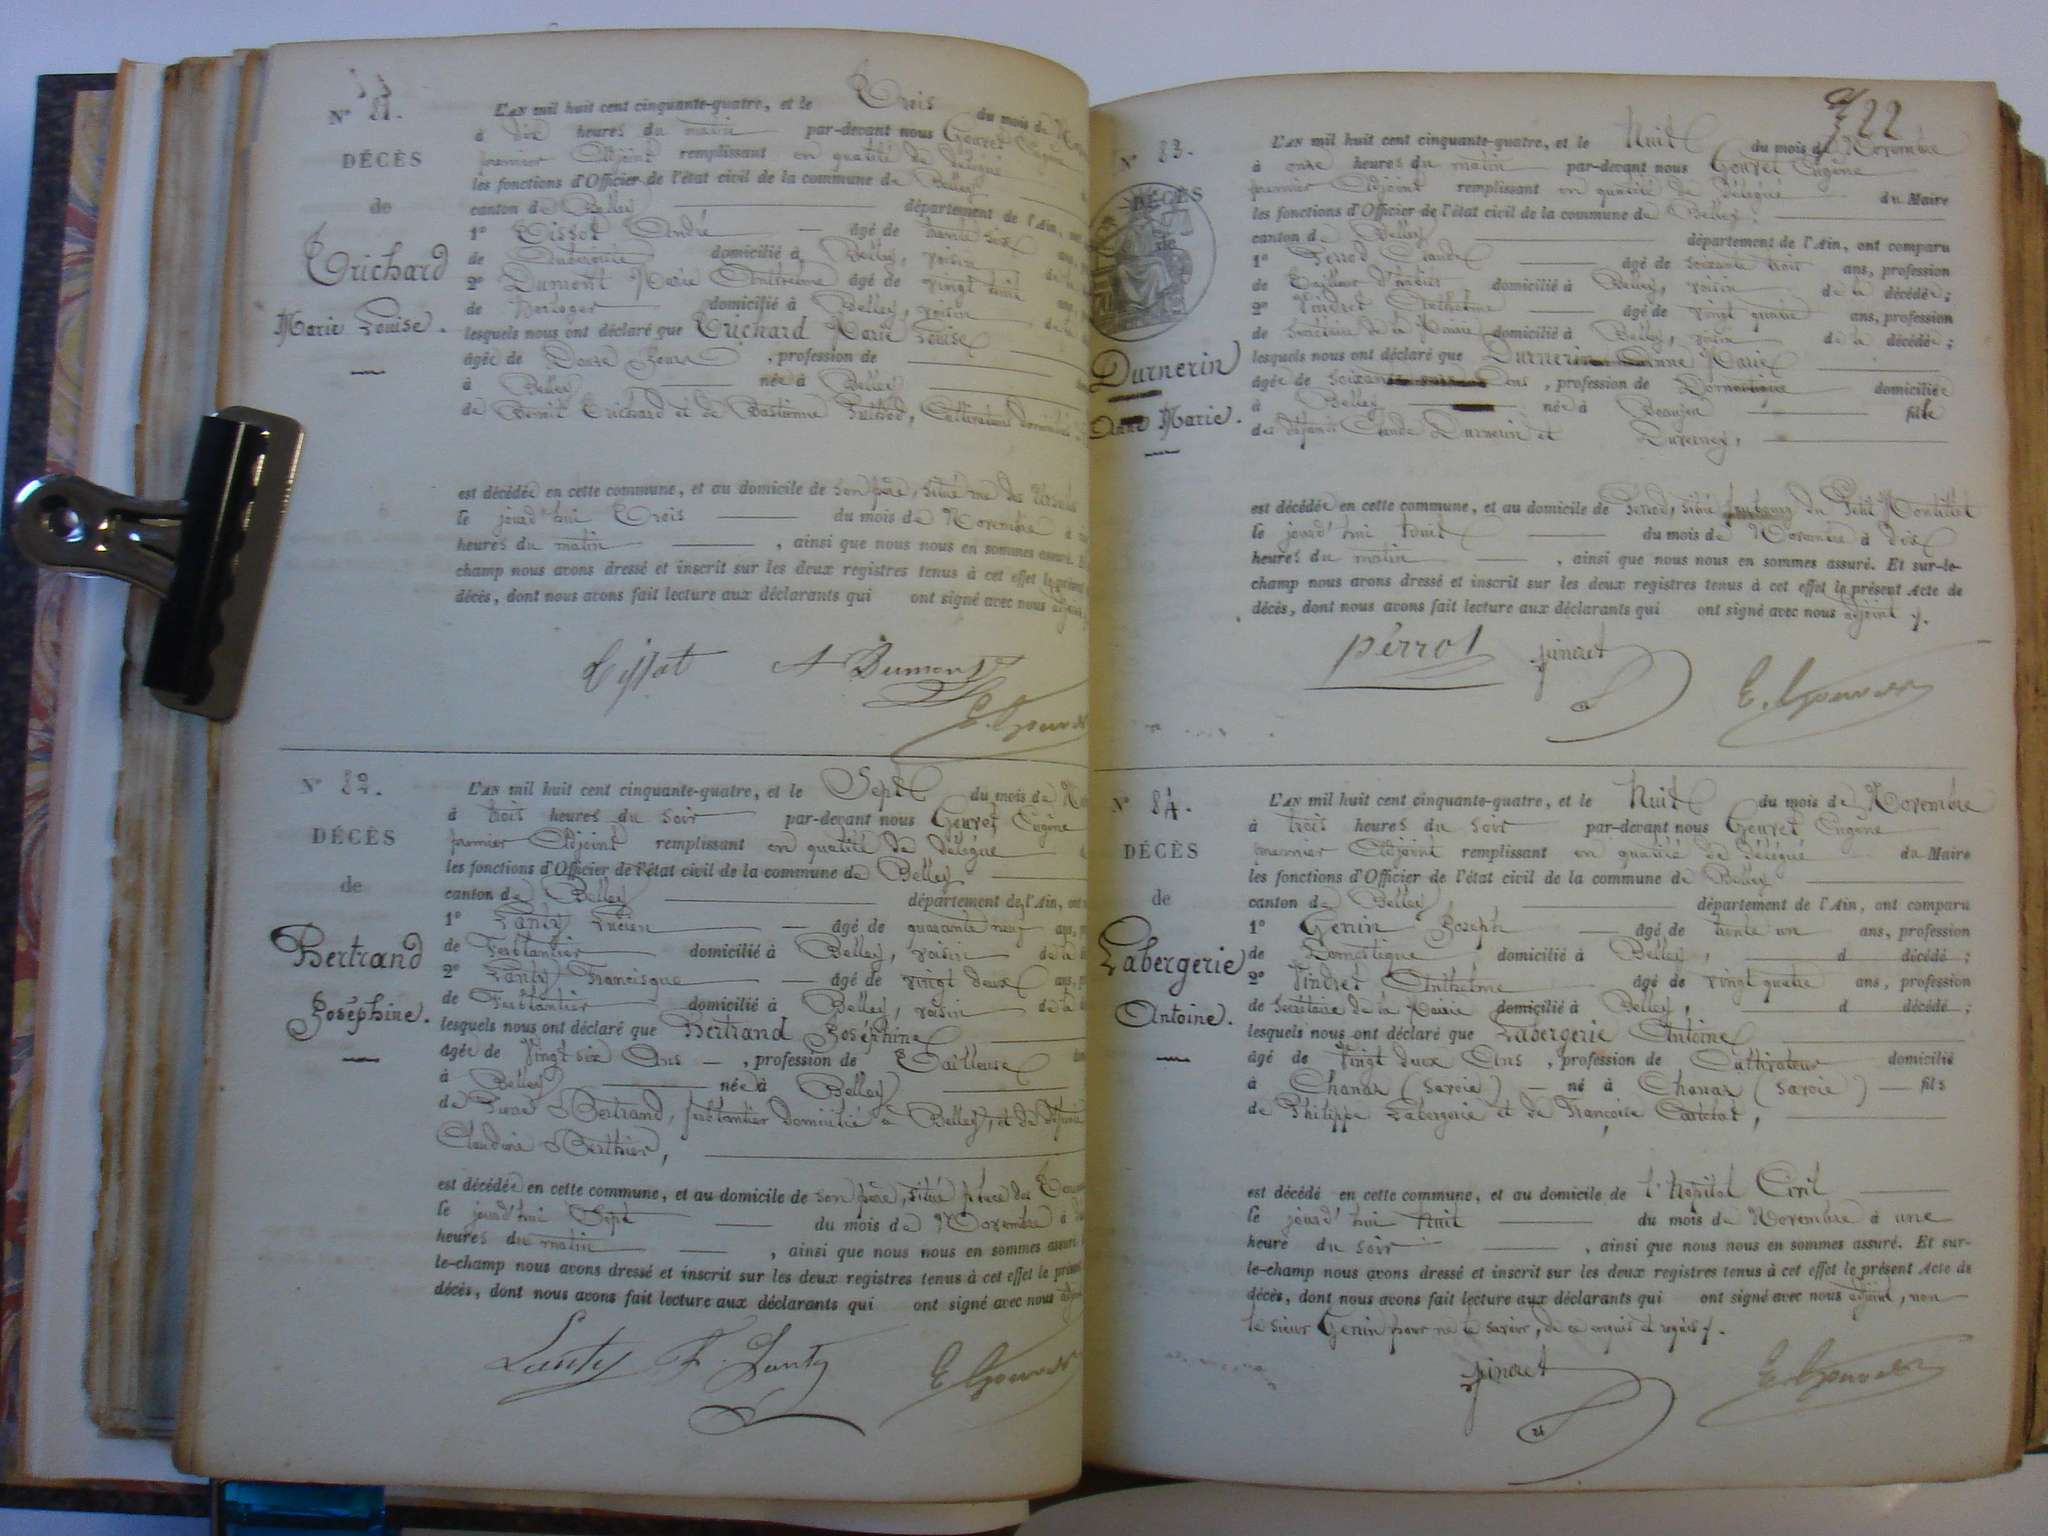 N° 81.
DÉCÈS
de
Trichard
Marie Louise.
L'AN mil huit cent cinquante-quatre, et le Trois du mois de
à dix heures du matin par-devant nous Gouvet Eugène
premier Adjoint remplissant en qualité de délégué
les fonctions d'Officier de l'état civil de la commune de Belley
canton de Belley département de l'Ain,
1° Tissot André âgé de trente six
de domicilié à Belley, voisin
2° Dumont Marie Anthelme âgé de vingt
de horloger domicilié à Belley, voisin
lesquels nous ont déclaré que Trichard Marie Louise
âgée de Douze Jours, profession de
à Belley née à Belley
de Benoit Trichard et de Bastienne, Cultivateurs
est décédée en cette commune, et au domicile de son père, situé rue des
le jourd'hui Trois du mois de Novembre à
heures du matin, ainsi que nous nous en sommes assuré.
champ nous avons dressé et inscrit sur les deux registres tenus à cet effet le présent
décès, dont nous avons fait lecture aux déclarants qui ont signé avec nous
Tissot A Dumont
E. Gouvet
N° 82.
DÉCÈS
de
Bertrand
Joséphine.
L'AN mil huit cent cinquante-quatre, et le Sept du mois de
à trois heures du soir par-devant nous Gouvet Eugène
premier Adjoint remplissant en qualité de délégué
les fonctions d'Officier de l'état civil de la commune de Belley
canton de Belley département de l'Ain,
1° Lanty Lucien âgé de quarante neuf ans,
de Ferblantier domicilié à Belley, voisin de la
2° Lanty Francisque âgé de vingt deux ans,
de Ferblantier domicilié à Belley, voisin de la
lesquels nous ont déclaré que Bertrand Joséphine
âgée de Vingt six Ans, profession de Tailleuse
à Belley née à Belley
de Bertrand, ferblantier domicilié à Belley, et de défunte
Claudine Berthier,
est décédée en cette commune, et au domicile de son père, situé place des
le jourd'hui Sept du mois de Novembre à
heures du matin, ainsi que nous nous en sommes assuré
le-champ nous avons dressé et inscrit sur les deux registres tenus à cet effet le présent
décès, dont nous avons fait lecture aux déclarants qui ont signé avec nous
Lanty F. Lanty E. Gouvet
22
N° 83.
DÉCÈS
de
Durnerin
Anne Marie.
L'AN mil huit cent cinquante-quatre, et le Huit du mois de Novembre
à onze heures du matin par-devant nous Gouvet Eugène
premier Adjoint remplissant en qualité de délégué du Maire
les fonctions d'Officier de l'état civil de la commune de Belley
canton de Belley département de l'Ain, ont comparu
1° Perrod Claude âgé de soixante trois ans, profession
de Tailleur d'habits domicilié à Belley, voisin de la décédée;
2° Vindret Anthelme âgé de vingt quatre ans, profession
de Secrétaire de la Mairie domicilié à Belley, voisin de la décédée;
lesquels nous ont déclaré que Durnerin Anne Marie
âgée de soixante ans, profession de Domestique domiciliée
à Belley née à Beaujeu fille
des défunts Claude Durnerin et Duverney,
est décédée en cette commune, et au domicile de Perrod, situé faubourg du Petit
le jourd'hui huit du mois de Novembre à dix
heures du matin, ainsi que nous nous en sommes assuré. Et sur-le-
champ nous avons dressé et inscrit sur les deux registres tenus à cet effet le présent Acte de
décès, dont nous avons fait lecture aux déclarants qui ont signé avec nous adjoint
perrot Vindret E. Gouvet
N° 84.
DÉCÈS
de
Labergerie
Antoine.
L'AN mil huit cent cinquante-quatre, et le Huit du mois de Novembre
à trois heures du soir par-devant nous Gouvet Eugène
premier Adjoint remplissant en qualité de délégué du Maire
les fonctions d'Officier de l'état civil de la commune de Belley
canton de Belley département de l'Ain, ont comparu
1° Genin Joseph âgé de trente un ans, profession
de Domestique domicilié à Belley, d décédé;
2° Vindret Anthelme âgé de vingt quatre ans, profession
de Secrétaire de la Mairie domicilié à Belley, d décédé;
lesquels nous ont déclaré que Labergerie Antoine
âgé de vingt deux Ans, profession de Cultivateur domicilié
à Chanaz (Savoie) né à Chanaz (Savoie) fils
de Philippe Labergerie et de Françoise,
est décédé en cette commune, et au domicile de l'Hôpital Civil
le jourd'hui huit du mois de Novembre à une
heure du soir, ainsi que nous nous en sommes assuré. Et sur-
le-champ nous avons dressé et inscrit sur les deux registres tenus à cet effet le présent Acte de
décès, dont nous avons fait lecture aux déclarants qui ont signé avec nous adjoint, non
le sieur Genin pour ne le savoir, de ce enquis et requis
Vindret E. Gouvet